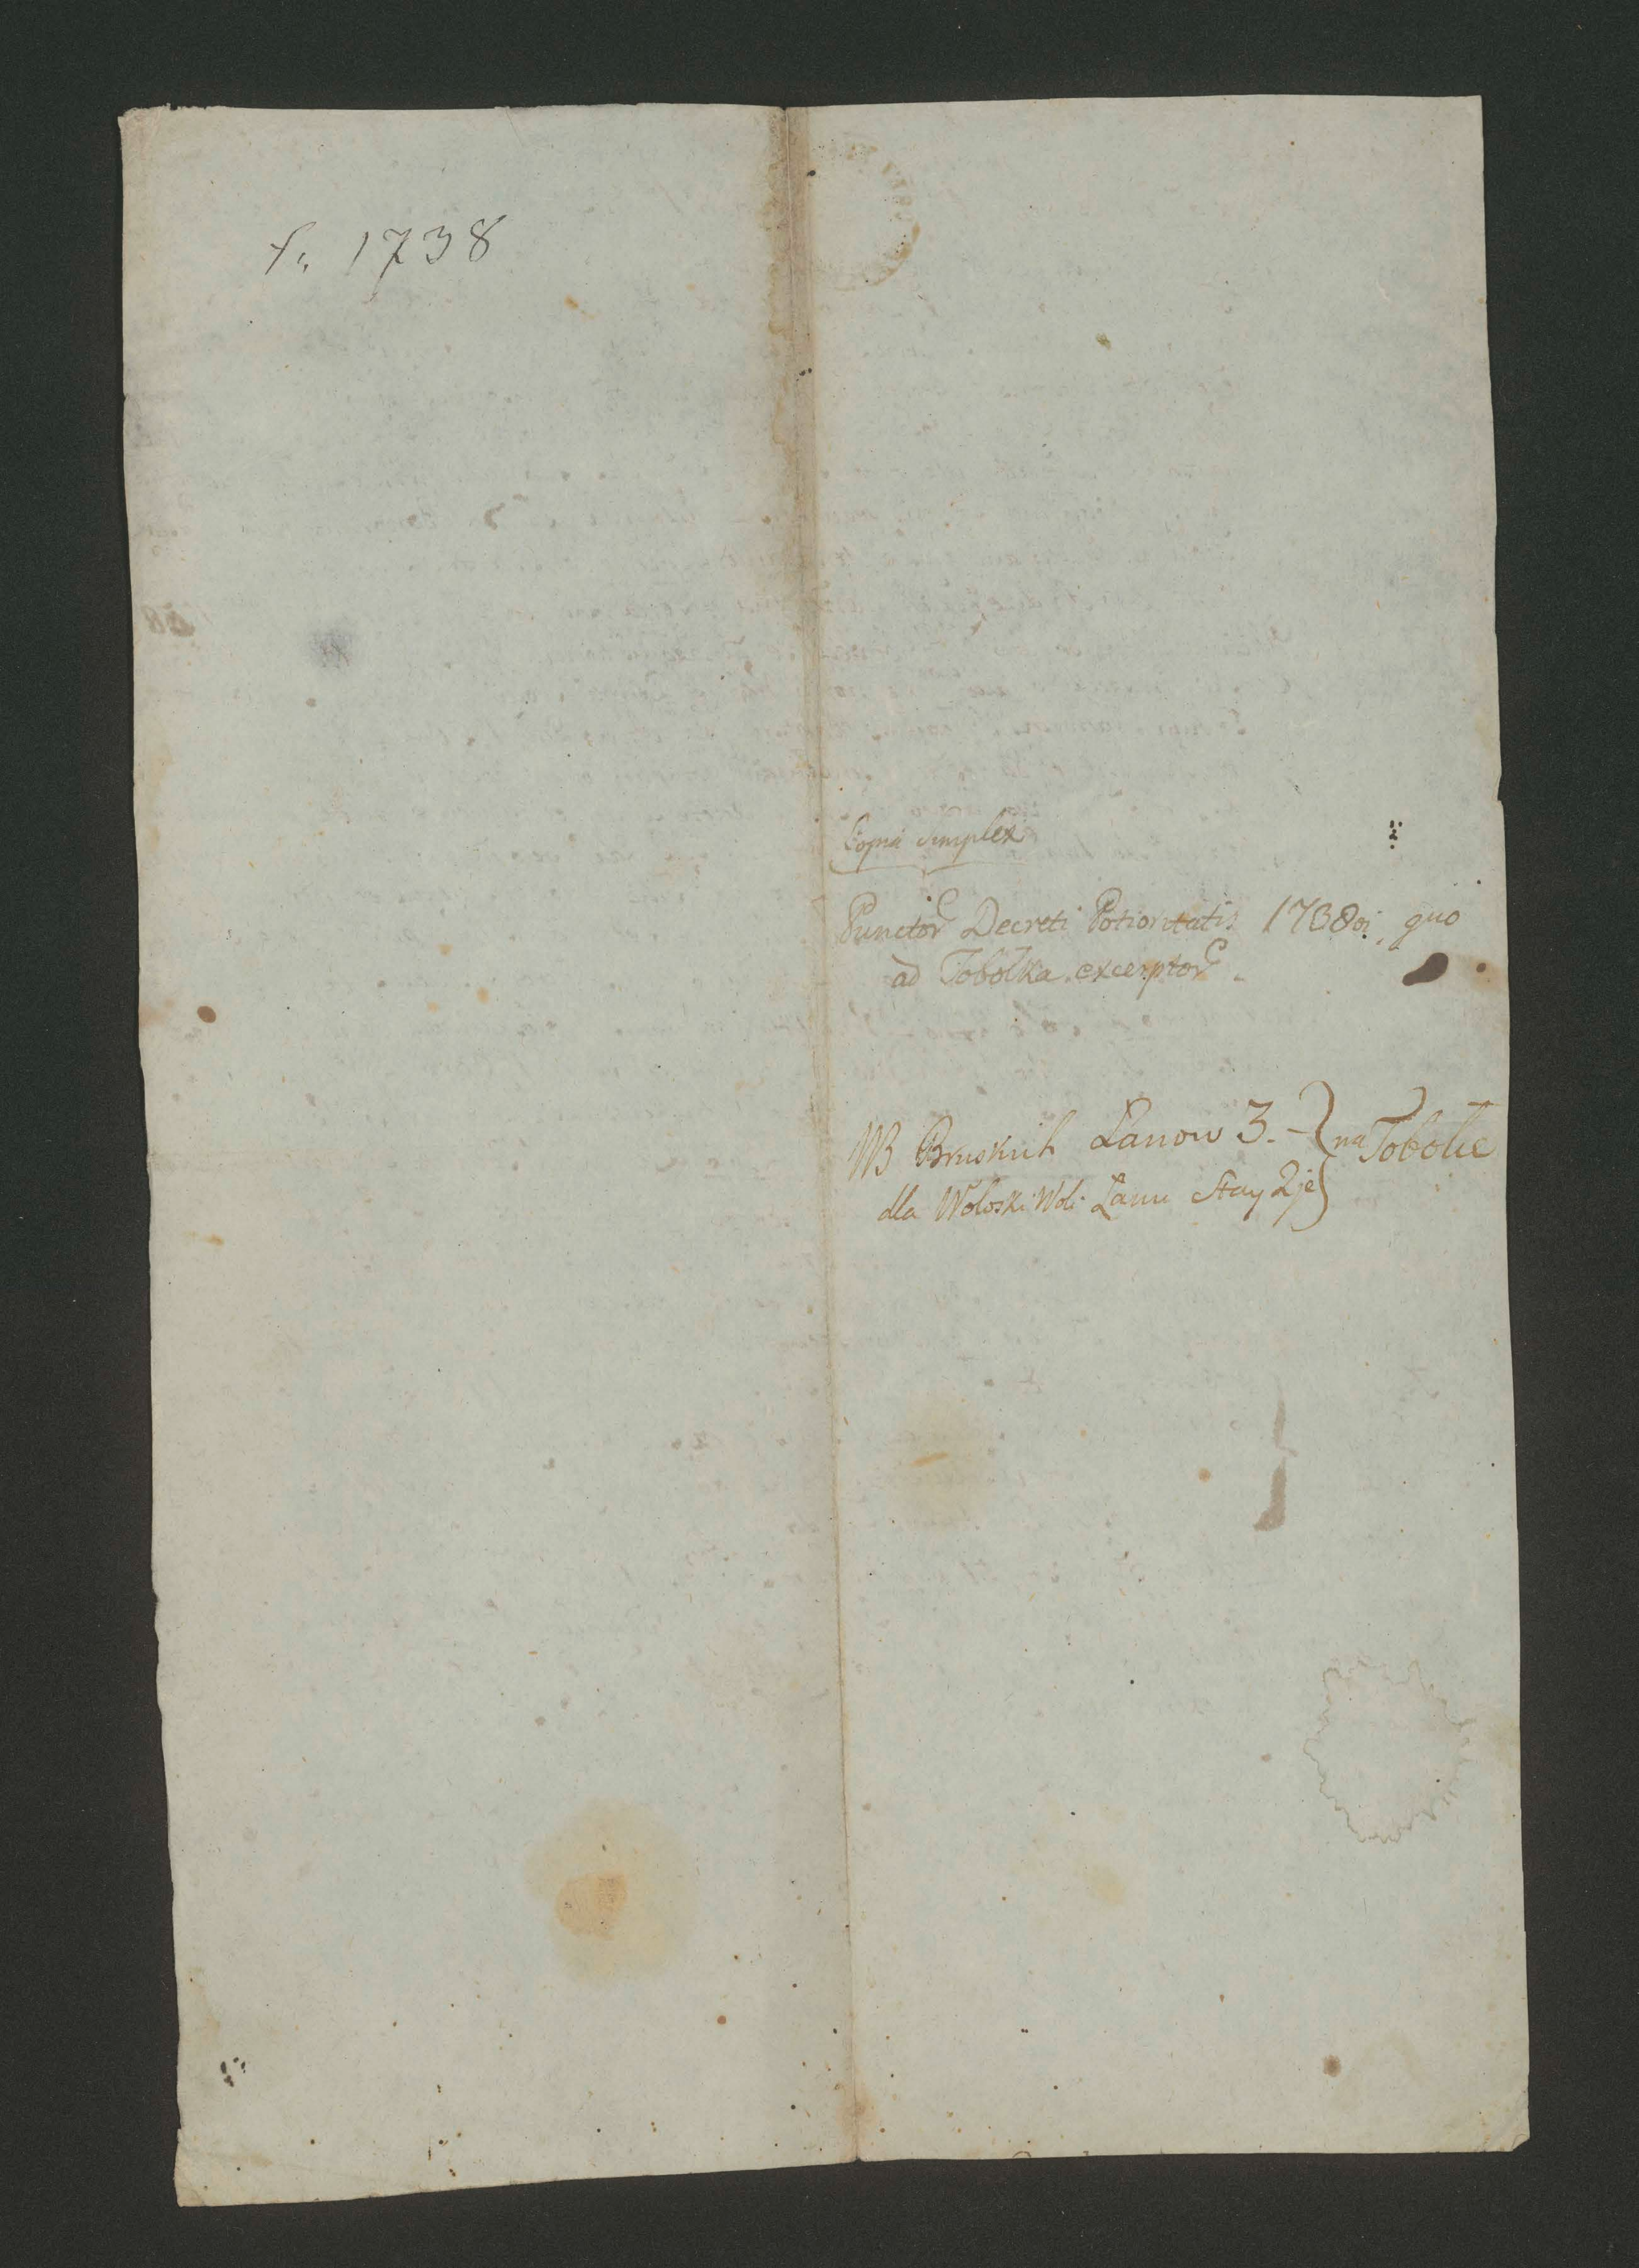 f. 1738
Copia simplex
Punctor Decreti Potioritatis 1738vi, quo
ad Tobolka excerptor
WB Bruskich Łanow 3. na Tobolie
dla Woloski Woli Łanu Stay 2je